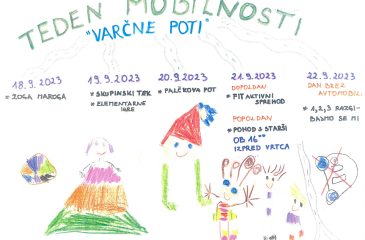 TEDEN MOBILNOSTI
"VARČNE POTI"
18.9.2023
* ŽOGA NAROGA
19.9.2023
* SKUPINSKI TEK
* ELEMENTARNE
IGRE
20.9.2023
* PALČKOVA POT
21.9.2023
DOPOLDAN
* FIT AKTIVNI
SPREHOD
POPOLDAN
* POHOD S STARŠI
OB 16⁰⁰
IZPRED VRTCA
22.9.2023
DAN BREZ
AVTOMOBILA
* 1,2,3 RAZGI-
BAJMO SE MI